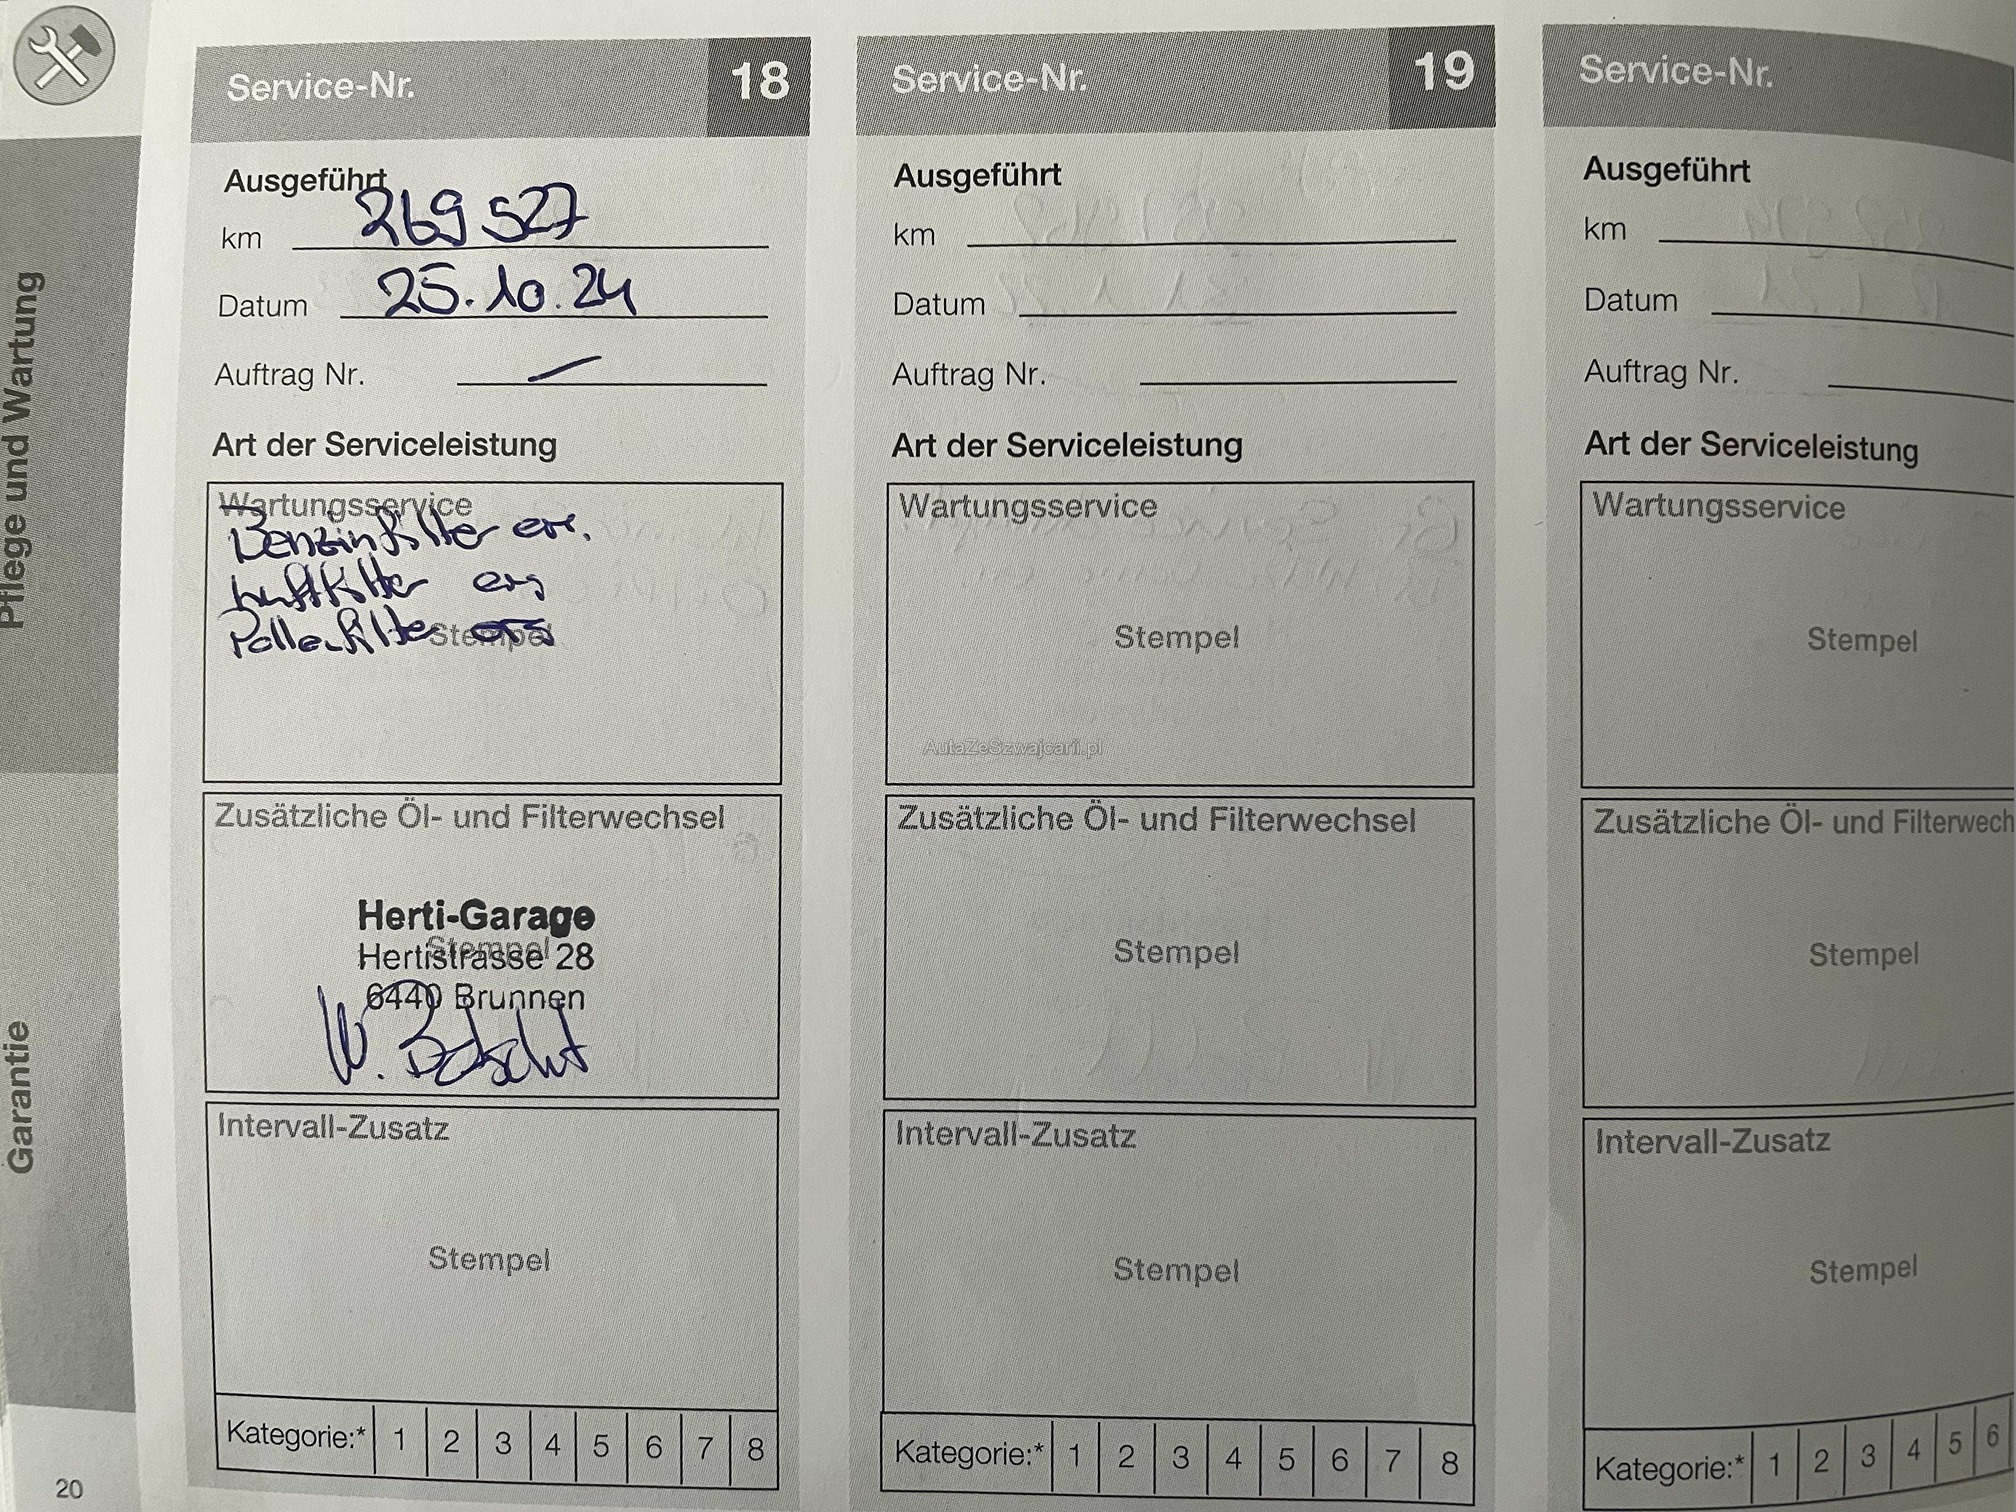 Pflege und Wartung
Garantie
20
Service-Nr. 18
Ausgeführt
km 269 527
Datum 25.10.24
Auftrag Nr. —
Art der Serviceleistung
Wartungsservice
Benzinfilter ers.
Luftfilter ers
Pollenfilter ers
Stempel
Zusätzliche Öl- und Filterwechsel
Herti-Garage
Stempel
Hertistrasse 28
6440 Brunnen
Intervall-Zusatz
Stempel
Kategorie:* 1 2 3 4 5 6 7 8
Service-Nr. 19
Ausgeführt
km
Datum
Auftrag Nr.
Art der Serviceleistung
Wartungsservice
Stempel
AutaZeSzwajcarii.pl
Zusätzliche Öl- und Filterwechsel
Stempel
Intervall-Zusatz
Stempel
Kategorie:* 1 2 3 4 5 6 7 8
Service-Nr.
Ausgeführt
km
Datum
Auftrag Nr.
Art der Serviceleistung
Wartungsservice
Stempel
Zusätzliche Öl- und Filterwech
Stempel
Intervall-Zusatz
Stempel
Kategorie:* 1 2 3 4 5 6